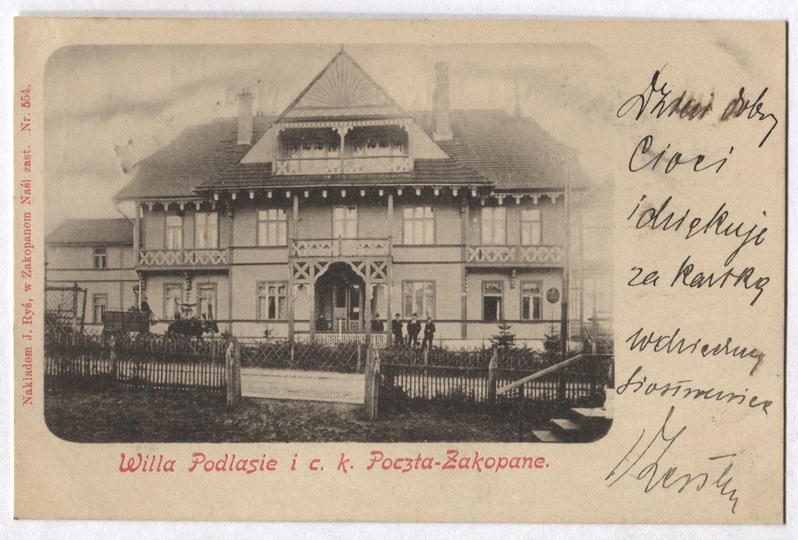 Nakładem J. Ryś, w Zakopanem Naśl zast. Nr. 554.
Dzień dobry
Cioci
i dziękuję
za kartkę
wdzięczny
Siostrzenica
Willa Podlasie i c. k. Poczta-Zakopane.